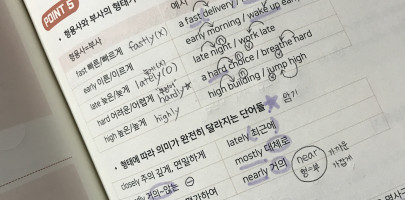 POINT 5
형용사와 부사의 형태가
예시
형용사=부사
fast 빠른/빠르게 fastly(X)
a fast delivery /
early 이른/이르게
early morning / wake up early
late 늦은/늦게 lately(O)
late night / work late
hard 어려운/어렵게 hardly*
a hard choice / breathe hard
high 높은/높게 highly
high building / jump high
형태에 따라 의미가 완전히 달라지는 단어들 암기
closely 주의 깊게, 면밀하게
lately 최근에
거의~않는
mostly 대체로
nearly 거의
near
형=부
가까운
가깝게